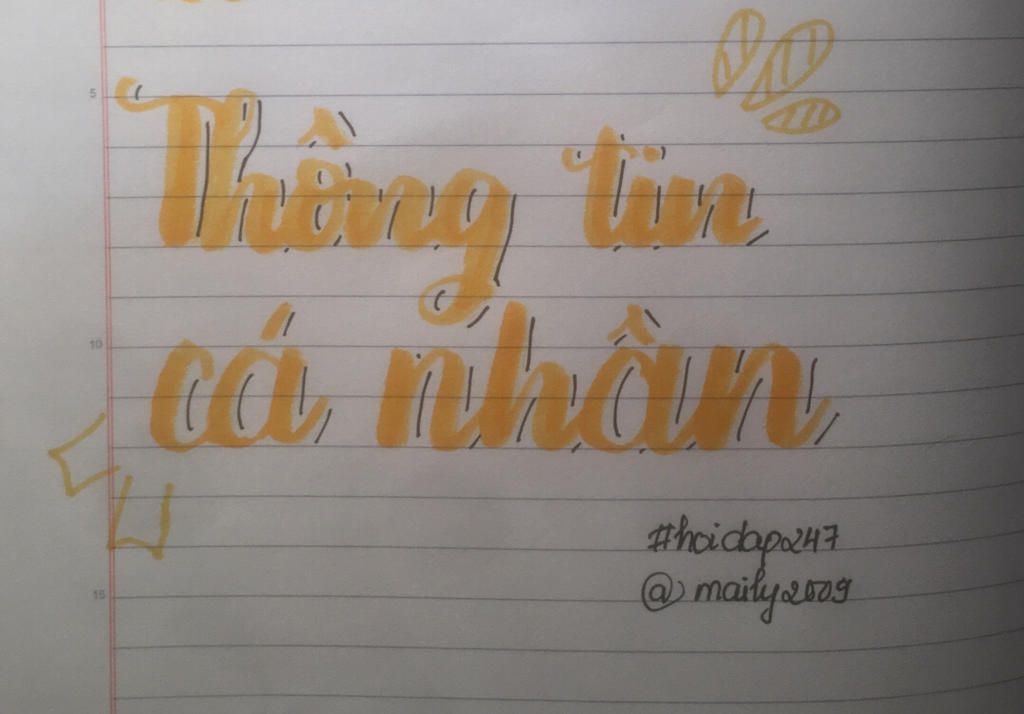 5
Thông tin
10
cá nhân
#hoidap247
@maily2009
15